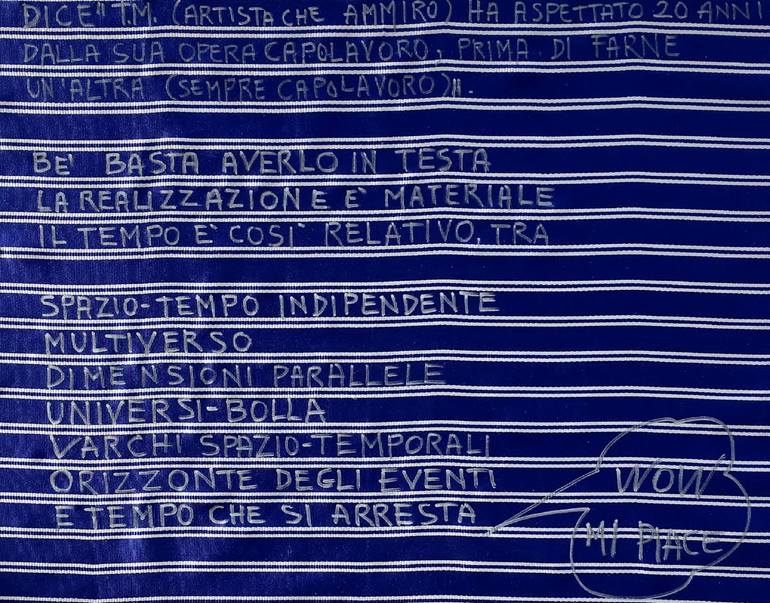 DICE" T.M. (ARTISTA CHE AMMIRO) HA ASPETTATO 20 ANNI
DALLA SUA OPERA CAPOLAVORO, PRIMA DI FARNE
UN'ALTRA (SEMPRE CAPOLAVORO)".
BE' BASTA AVERLO IN TESTA
LA REALIZZAZIONE E' MATERIALE
IL TEMPO E' COSI' RELATIVO, TRA
SPAZIO-TEMPO INDIPENDENTE
MULTIVERSO
DIMENSIONI PARALLELE
UNIVERSI-BOLLA
VARCHI SPAZIO-TEMPORALI
ORIZZONTE DEGLI EVENTI
E TEMPO CHE SI ARRESTA
WOW
MI PIACE